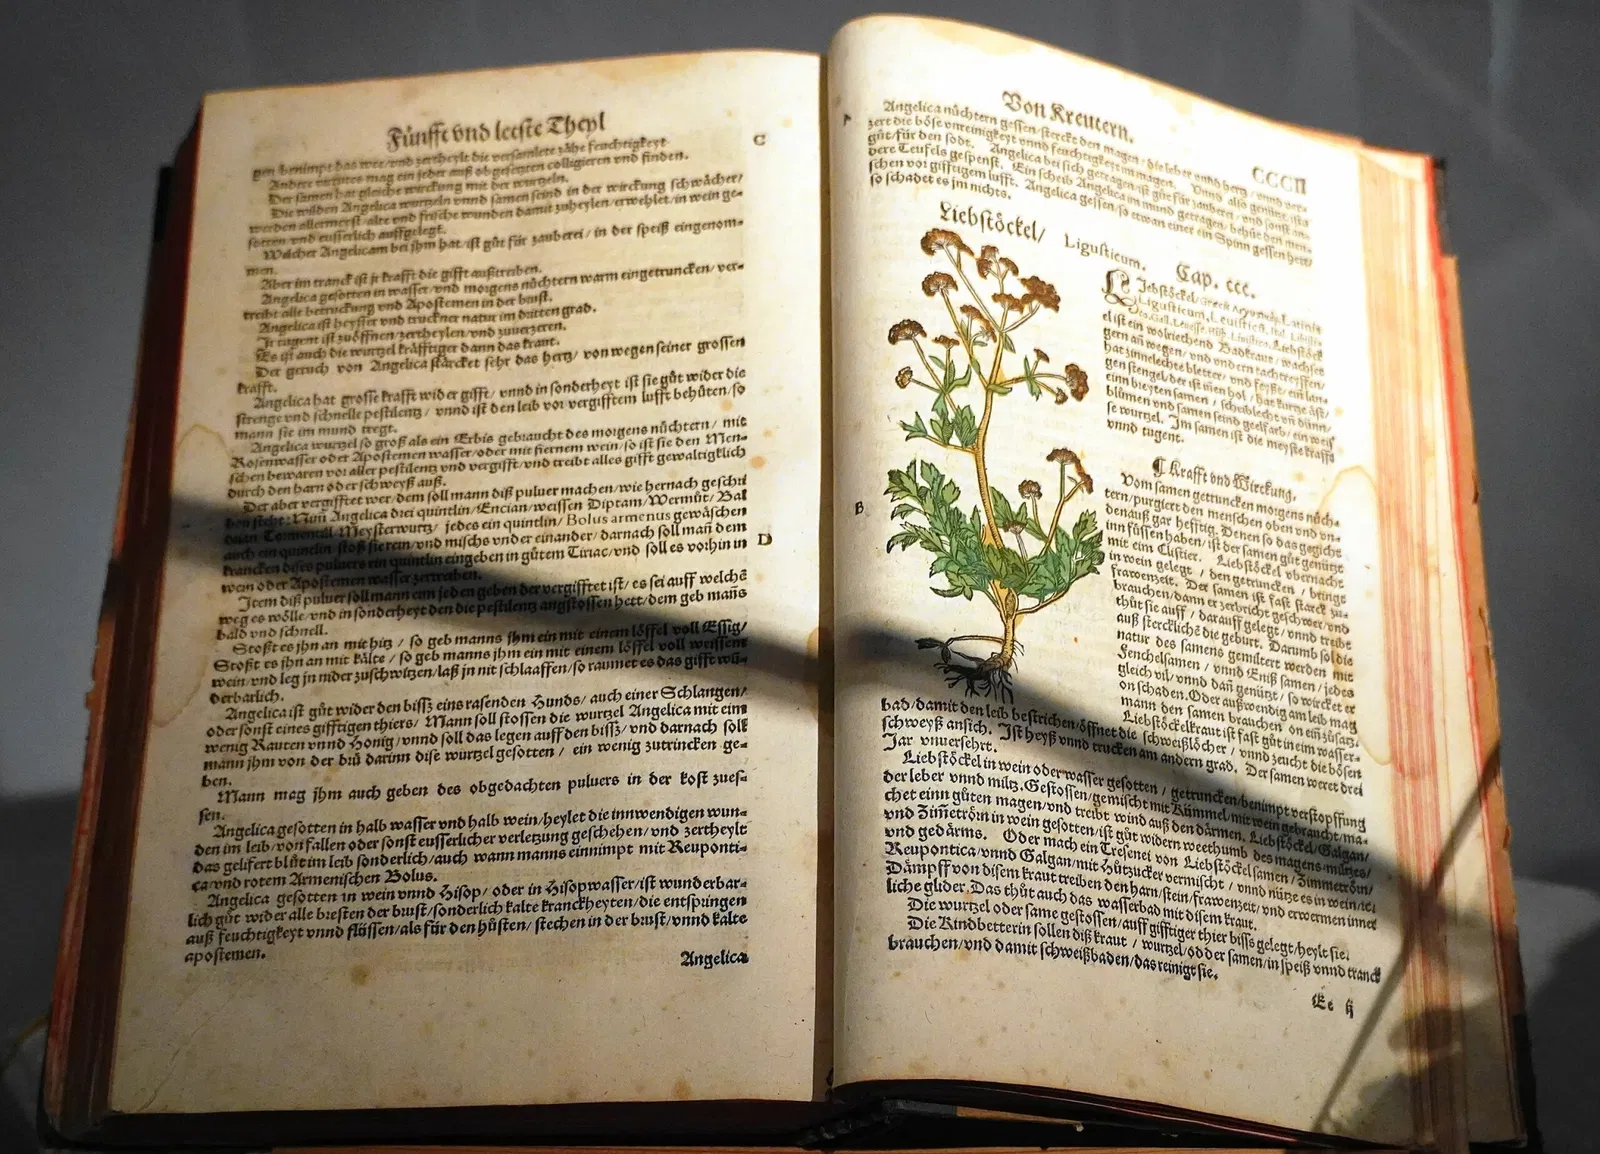 Fünfft vnd letste Theyl
gen benimpt das wee/vnd zertheylt die versamlete zähe feuchtigkeyt
Andere virtutes mag ein jeder auß obgesetzten colligieren vnd finden.
Der samen hat gleiche wirckung mit der wurtzeln.
Die wilden Angelica wurtzeln vnnd samen seind in der wirckung schwächer/
werden allermeest/alte vnd frische wunden damit zuheylen/erwehlet/in wein ge-
sotten vnd eusserlich auffgelegt.
Welcher Angelicam bei jhm hat/ist gůt für zauberei/in der speiß eingenom-
men.
Aber im tranck ist jr krafft die gifft außtreiben.
Angelica gesotten in wasser/vnd morgens nüchtern warm eingetruncken/ver-
treibt alle betruckung vnd Apostemen in der brust.
Angelica ist heysser vnd truckner natur im dritten grad.
Ir tugent ist zuöffnen/zertheylen/vnd zuuerzeren.
Es ist auch die wurtzel kräfftiger dann das kraut.
Der geruch von Angelica stärcket sehr das hertz/von wegen seiner grossen
krafft.
Angelica hat grosse krafft wider gifft/vnnd in sonderheyt ist sie gůt wider die
strenge vnd schnelle pestilentz/vnnd ist den leib vor vergifftem lufft behüten/so
mann sie im mund tregt.
Angelica wurtzel so groß als ein Erbis gebraucht des morgens nüchtern/mit
Rosenwasser oder Apostemen wasser/oder mit firnem wein/so ist sie den Men-
schen bewaren vor aller pestilentz vnd vergifft/vnd treibt alles gifft gewaltigklich
durch den harn oder schweyß auß.
Der aber vergifftet wer/dem soll mann diß puluer machen/wie hernach geschri
ben steht: Nim̄ Angelica drei quintlin/Encian/weissen Diptam/Wermůt/Bal
drian/Tormentill/Meysterwurtz/jedes ein quintlin/Bolus armenus gewäschen
auch ein quintlin/stoß sie rein/vnd mischs vnder einander/darnach soll man̄ dem
krancken dises puluers ein quintlin eingeben in gůtem Tiriac/vnd soll es vorhin in
wein oder Apostemen wasser zertreiben.
Item diß puluer soll mann eim jeden geben der vergifftet ist/es sei auff welche
weg es wölle/vnd in sonderheyt den die pestilentz angstossen hett/dem geb manns
bald vnd schnell.
Stoßt es jhn an mit hitz/so geb manns jhm ein mit einem löffel voll Essig/
Stoßt es jhn an mit kälte/so geb manns jhm ein mit einem löffel voll weissem
wein/vnd leg jn nider zuschwitzen/laß jn nit schlaaffen/so raumet es das gifft wũ-
derbarlich.
Angelica ist gůt wider den bissz eins rasenden Hunds/auch einer Schlangen/
oder sonst eines gifftigen thiers/Mann soll stossen die wurtzel Angelica mit eim
wenig Rauten vnnd Honig/vnnd soll das legen auff den bissz/vnd darnach soll
mann jhm von der brů darinn dise wurtzel gesotten/ein wenig zutrincken ge-
ben.
Mann mag jhm auch geben des obgedachten puluers in der kost zues-
sen.
Angelica gesotten in halb wasser vnd halb wein/heylet die innwendigen wun-
den im leib/von fallen oder sonst eusserlicher verletzung geschehen/vnd zertheylt
das gelifert blůt im leib sonderlich/auch wann manns einnimpt mit Reuponti-
ca vnd rotem Armenischen Bolus.
Angelica gesotten in wein vnnd Hisop/oder in Hisopwasser/ist wunderbar-
lich gůt wider alle bresten der brust/sonderlich kalte kranckheyten/die entspringen
auß feuchtigkeyt vnnd flüssen/als für den hůsten/stechen in der brust/vnnd kalte
apostemen.
Angelica
C
D
Von Kreutern.
CCCII
A
Angelica nüchtern gessen/stercket den magen/die leber vnnd hertz/vnnd ver-
zert die böse vnreinigkeyt vnnd feuchtigkeyt im magen. Vnnd also genützt/ists
gůt/für den sodt. Angelica bei sich getragen/ist gůt für zauberei/vnd sonst an-
dere Teufels gespenst. Ein scheib Angelica im mund getragen/behüt den men-
schen vor gifftigem lufft. Angelica gessen/so etwan einer ein Spinn gessen hett/
so schadet es im nichts.
Liebstöckel/ Ligusticum. Cap. ccc.
LIebstöckel/
Ligusticum, Leuisticũ,
Liebstöck
el ist ein wolriechend Badkraut/wachset
gern an wegen/vnd vndern tachtreyffen/
hat zinnelechte bletter/vnd feyßt/ein lan-
gen stengel/der ist in̄er hol/hat kurtze äst/
einn bleyten samen/scheiblecht vn̄ dünn/
blůmen vnd samen seind geelfarb/ein weis
se wurtzel. Im samen ist die meyste krafft
vnnd tugent.
B
¶ Krafft vnd Wirckung.
Vom samen getruncken morgens nüch-
tern/purgiert den menschen oben vnd vn-
denauß gar hefftig. Denen so das gegicht
inn füssen haben/ist der samen gůt genützt
mit eim Clistier. Liebstöckel vbernacht
in wein gelegt/den getruncken/bringt
frawenzeit. Der samen ist fast starck zu-
brauchen/dann er zerbricht geschwer/vnd
thůt sie auff/darauff gelegt/vnnd treibt
auß stercklichē die geburt. Darumb sol die
natur des samens gemiltert werden mit
Fenchelsamen/vnnd Eniß samen/jedes
gleich vil/vnnd dan̄ genützt/so wircket er
on schaden. Oder außwendig am leib mag
mann den samen brauchen on ein̄ zůsatz.
Liebstöckelkraut ist fast gůt in eim wasser-
bad/damit den leib bestrichen/öffnet die schweißlöcher/vnnd zeucht die bösen
schweyß ansich. Ist heyß vnnd trucken am andern grad. Der samen weret drei
Jar vnuersehrt.
Liebstöckel in wein oder wasser gesotten/getruncken/benimpt verstopffung
der leber vnnd miltz. Gestossen/gemischt mit Kümmel/mit wein gebraucht/ma-
chet einn gůten magen/vnd treibt wind auß den därmen. Liebstöckel/Galgan/
vnd Zim̄etrörn in wein gesotten/ist gůt widern weethumb des magens/miltzes/
vnd gedärms. Oder mach ein Tresenei von Liebstöckelsamen/Zimmetrörn/
Reupontica/vnnd Galgan/mit Hützucker vermischt/vnnd nütze es in wein/rc.
Dämpff von disem kraut treiben den harn/stein/frawenzeit/vnd erwermen inner
liche glider. Das thůt auch das wasserbad mit disem kraut.
Die wurtzel oder same gestossen/auff gifftiger thier biss gelegt/heylt sie.
Die Kindbetterin sollen diß kraut/wurtzel/odder samen/in speiß vnnd tranck
brauchen/vnd damit schweißbaden/das reinigt sie.
Ee ij